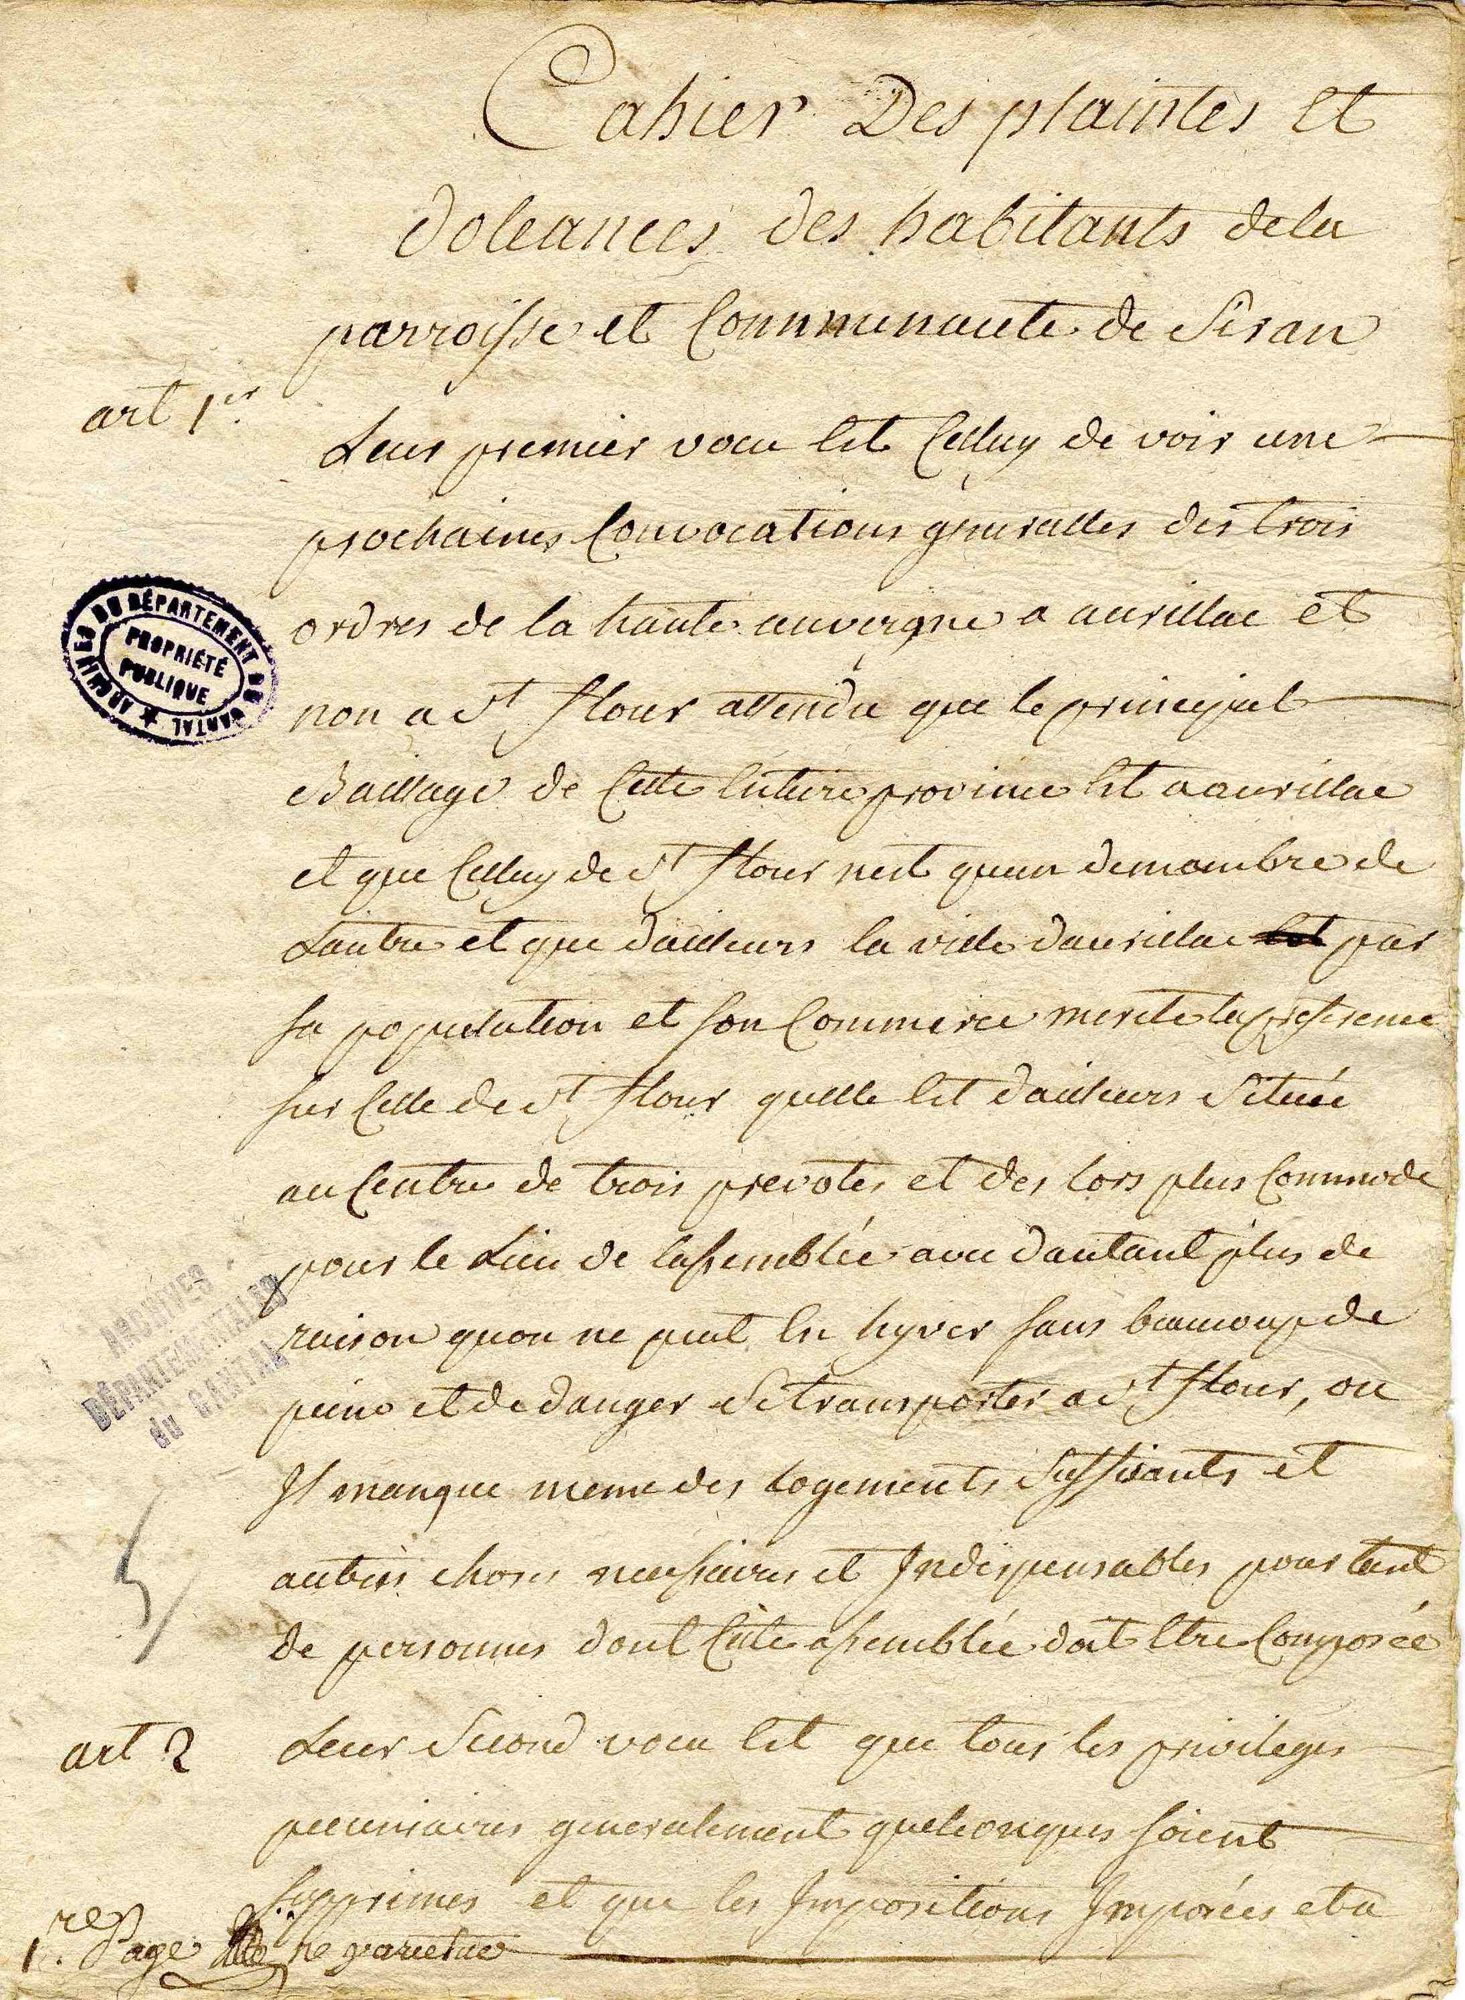 Cahier Des plaintes et
doleances des habitants de la
parroisse et Communaute de Siran
art 1er
Leur premier voeu Est Celluy de voir une
prochaines Convocations generalles des trois
ordres de la haute auvergne a aurillac et
non a St flour attendu que le principal
Baillage de Cette Entiere province Est a aurillac
et que Celluy de St flour nest quun demambre de
Lautre et que dailleurs la ville daurillac par
sa population et son Commerce merite la preference
sur Celle de St flour quelle Est dailleurs Située
au Centre de trois prevotes et des lors plus Commode
pour le Lieu de lassemblée avec dautant plus de
raison quon ne peut En hyver sans beaucoup de
peine et de danger Se transporter a St flour, ou
Il manque meme des logements Suffisants et
autres choses necessaires et Indispensables pour tant
de personnes dont Cette assemblée doit Etre Composée
art 2
Leur Second voeu Est que tous les privileges
pecuniaires generalement quelconques soient
supprimes et que les Impositions Imposées et a
1re Page ne varietur
ARCHIVES DU DÉPARTEMENT DU CANTAL ★
PROPRIÉTÉ
PUBLIQUE
ARCHIVES
DÉPARTEMENTALES
du CANTAL
5